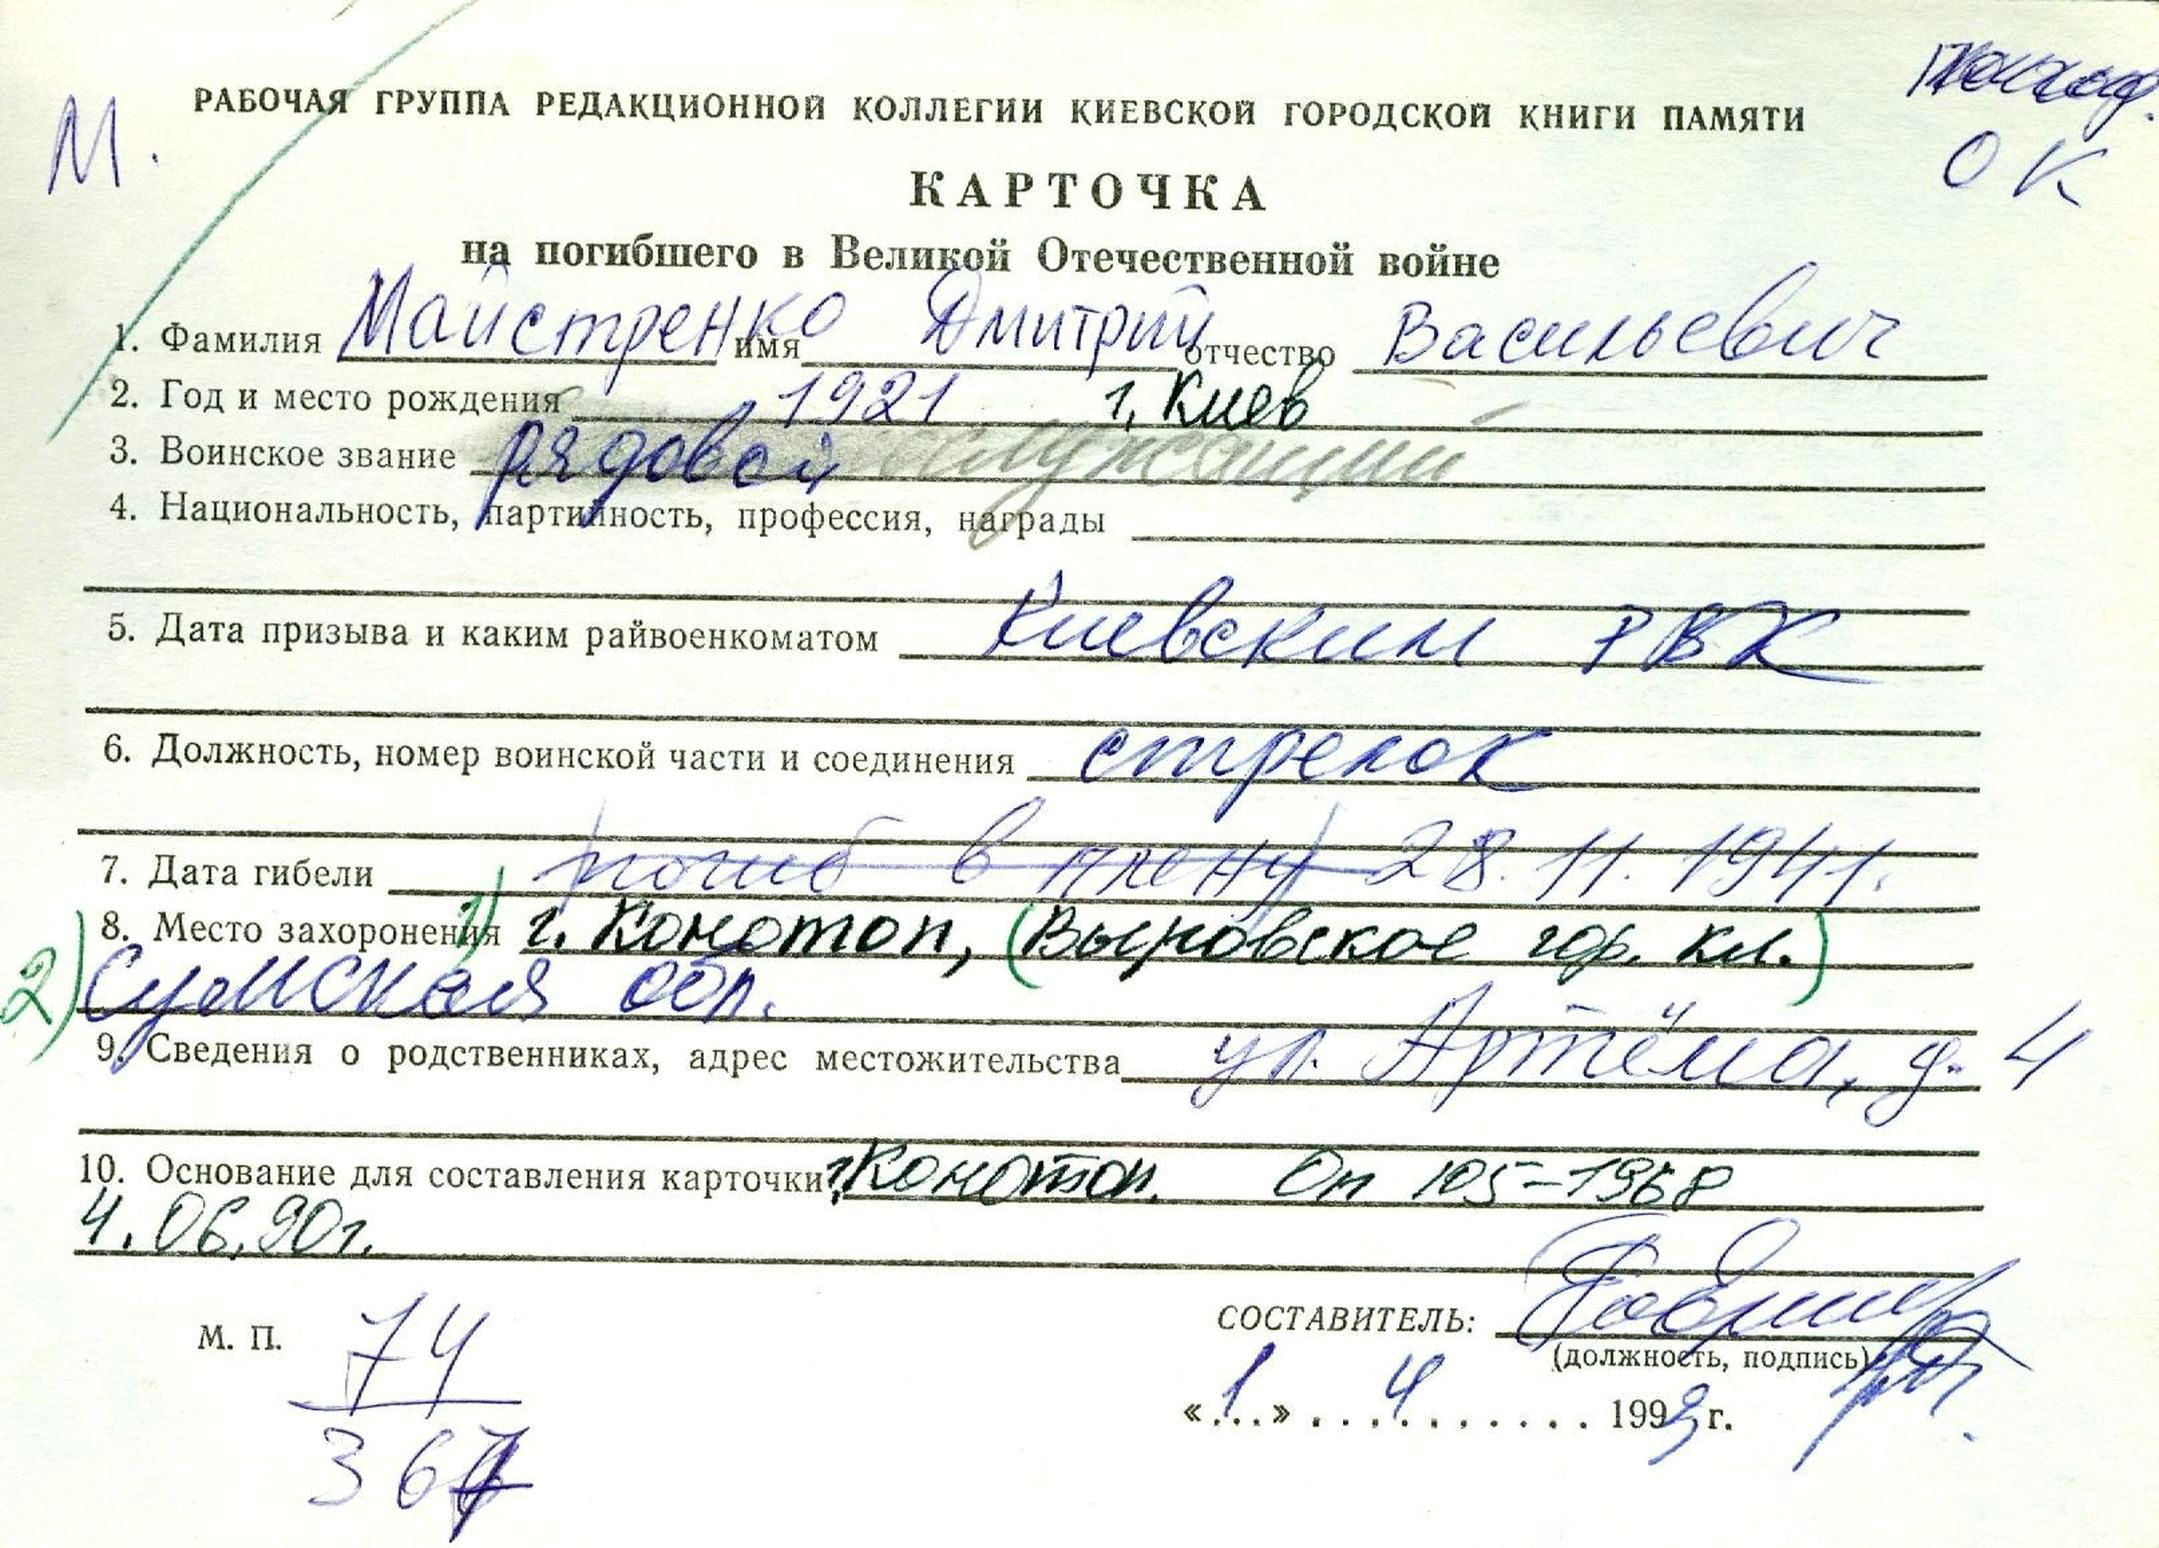 М.
ОК
РАБОЧАЯ ГРУППА РЕДАКЦИОННОЙ КОЛЛЕГИИ КИЕВСКОЙ ГОРОДСКОЙ КНИГИ ПАМЯТИ
КАРТОЧКА
на погибшего в Великой Отечественной войне
1. Фамилия Майстренко имя Дмитрий отчество Васильевич
2. Год и место рождения 1921 г. Киев
3. Воинское звание рядовой служащий
4. Национальность, партийность, профессия, награды
5. Дата призыва и каким райвоенкоматом Киевским РВК
6. Должность, номер воинской части и соединения стрелок
7. Дата гибели погиб в плену 28.11.1941.
8. Место захоронения 1) г. Конотоп, (Выровское гор. кл.)
2) Сумская обл.
9. Сведения о родственниках, адрес местожительства ул. Артёма, д. 4
10. Основание для составления карточки г. Конотоп. Оп 105-1968
4.06.90г.
М. П. 74
СОСТАВИТЕЛЬ:
(должность, подпись)
«1» 4 1993 г.
367